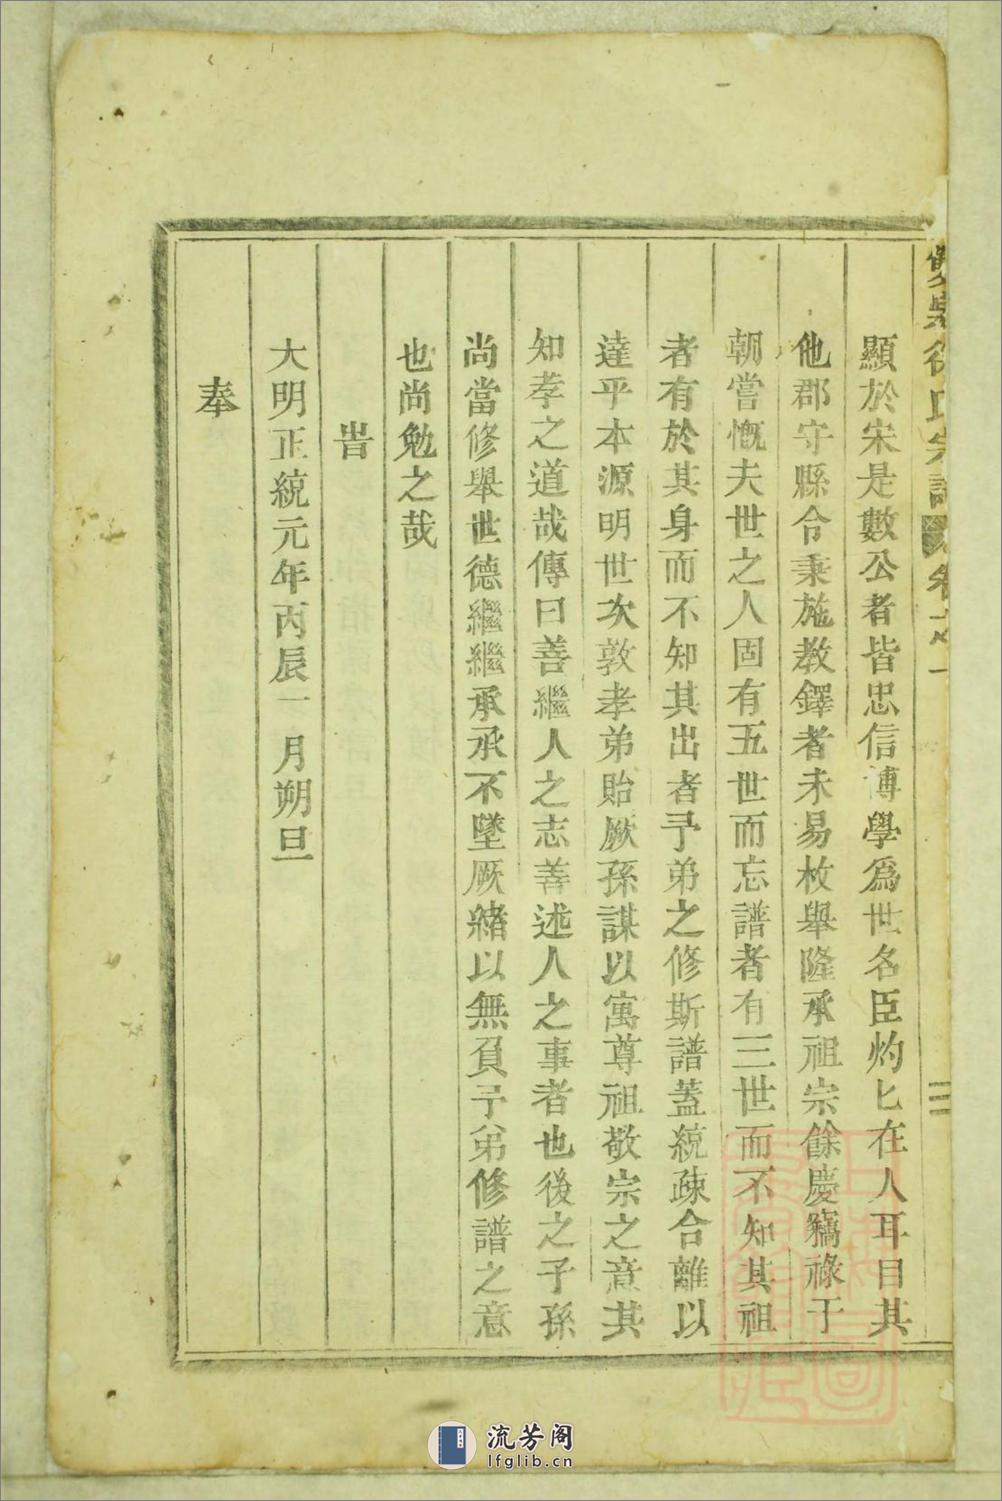 徐氏宗譜 卷之一
三
顯於宋是數公者皆忠信博學爲世名臣灼匕在人耳目其
他郡守縣令秉施教鐸者未易枚舉隆承祖宗餘慶竊祿于
朝嘗慨夫世之人固有五世而忘譜者有三世而不知其祖
者有於其身而不知其出者予弟之修斯譜蓋統疎合離以
達乎本源明世次敦孝弟貽厥孫謀以寓尊祖敬宗之意其
知孝之道哉傳曰善繼人之志善述人之事者也後之子孫
尚當修舉世德繼繼承承不墜厥緒以無負予弟修譜之意
也尚勉之哉
旹
大明正統元年丙辰一月朔旦
奉
流芳阁
lfglib.cn